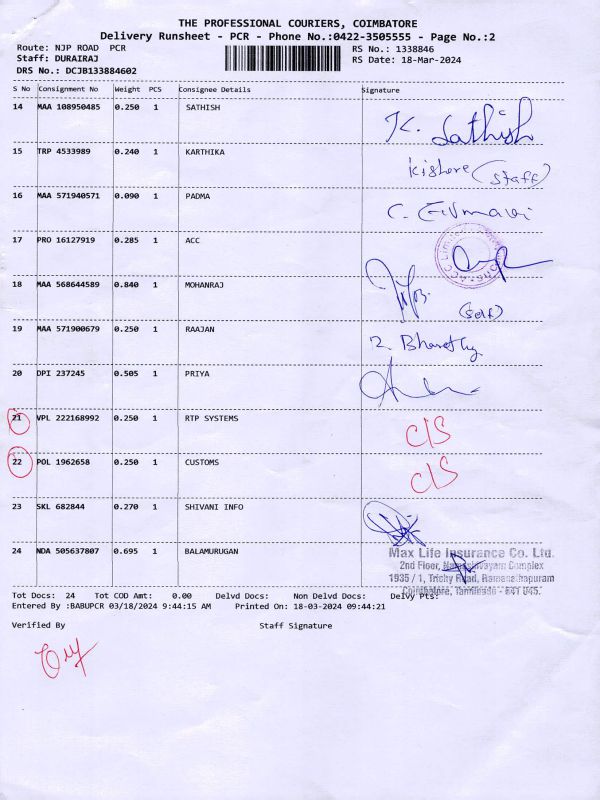 THE PROFESSIONAL COURIERS, COIMBATORE
Delivery Runsheet - PCR - Phone No.:0422-3505555 - Page No.:2
Route: NJP ROAD PCR RS No.: 1338846
Staff: DURAIRAJ RS Date: 18-Mar-2024
DRS No.: DCJB133884602
S No Consignment No Weight PCS Consignee Details Signature
14 MAA 108950485 0.250 1 SATHISH K. Sathish
15 TRP 4533989 0.240 1 KARTHIKA Kishore (Staff)
16 MAA 571940571 0.090 1 PADMA
17 PRO 16127919 0.285 1 ACC
18 MAA 568644589 0.840 1 MOHANRAJ (self)
19 MAA 571900679 0.250 1 RAAJAN
20 DPI 237245 0.505 1 PRIYA
21 VPL 222168992 0.250 1 RTP SYSTEMS C/S
22 POL 1962658 0.250 1 CUSTOMS C/S
23 SKL 682844 0.270 1 SHIVANI INFO
24 NDA 505637807 0.695 1 BALAMURUGAN Max Life Insurance Co. Ltd.
2nd Floor, Complex
1935 / 1, Trichy Road, Ramanathapuram
Coimbatore, Tamilnadu - 641 045.
Tot Docs: 24 Tot COD Amt: 0.00 Delvd Docs: Non Delvd Docs: Delvy Pts:
Entered By :BABUPCR 03/18/2024 9:44:15 AM Printed On: 18-03-2024 09:44:21
Verified By Staff Signature